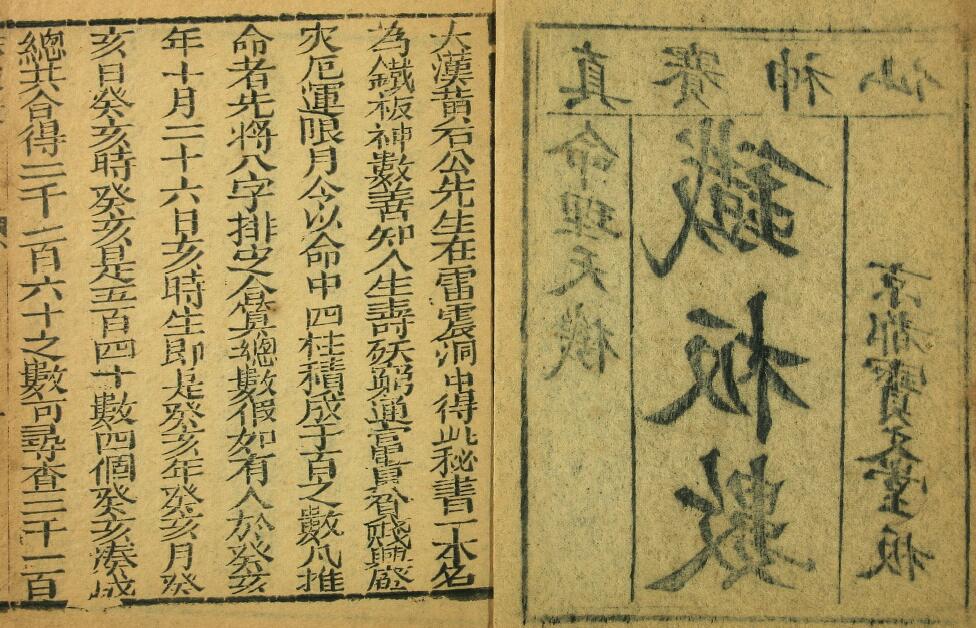 真賽神仙
命理天機
鐵板數
京都寶文堂板
大漢黃石公先生在雷震洞中得此秘書一本名
為鐵板神數善知人生壽殀窮通富貴貧賤興盛
灾厄運限月令以命中四柱積成千百之數凡推
命者先將八字排定合筭總數假如有人於癸亥
年十月二十六日亥時生即是癸亥年癸亥月癸
亥日癸亥時癸亥是五百四十數四個癸亥湊成
總共合得二千一百六十之數可尋查二千一百